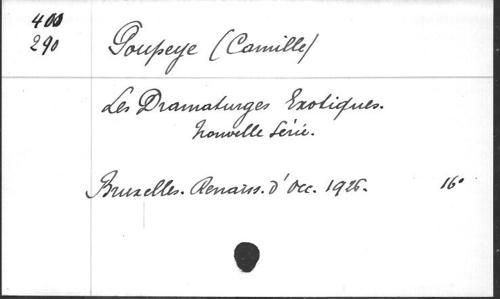 400
290
Poupeye (Camille)
Les Dramaturges Exotiques.
Nouvelle Série.
Bruxelles. Renaiss. d'Occ. 1926. 16°